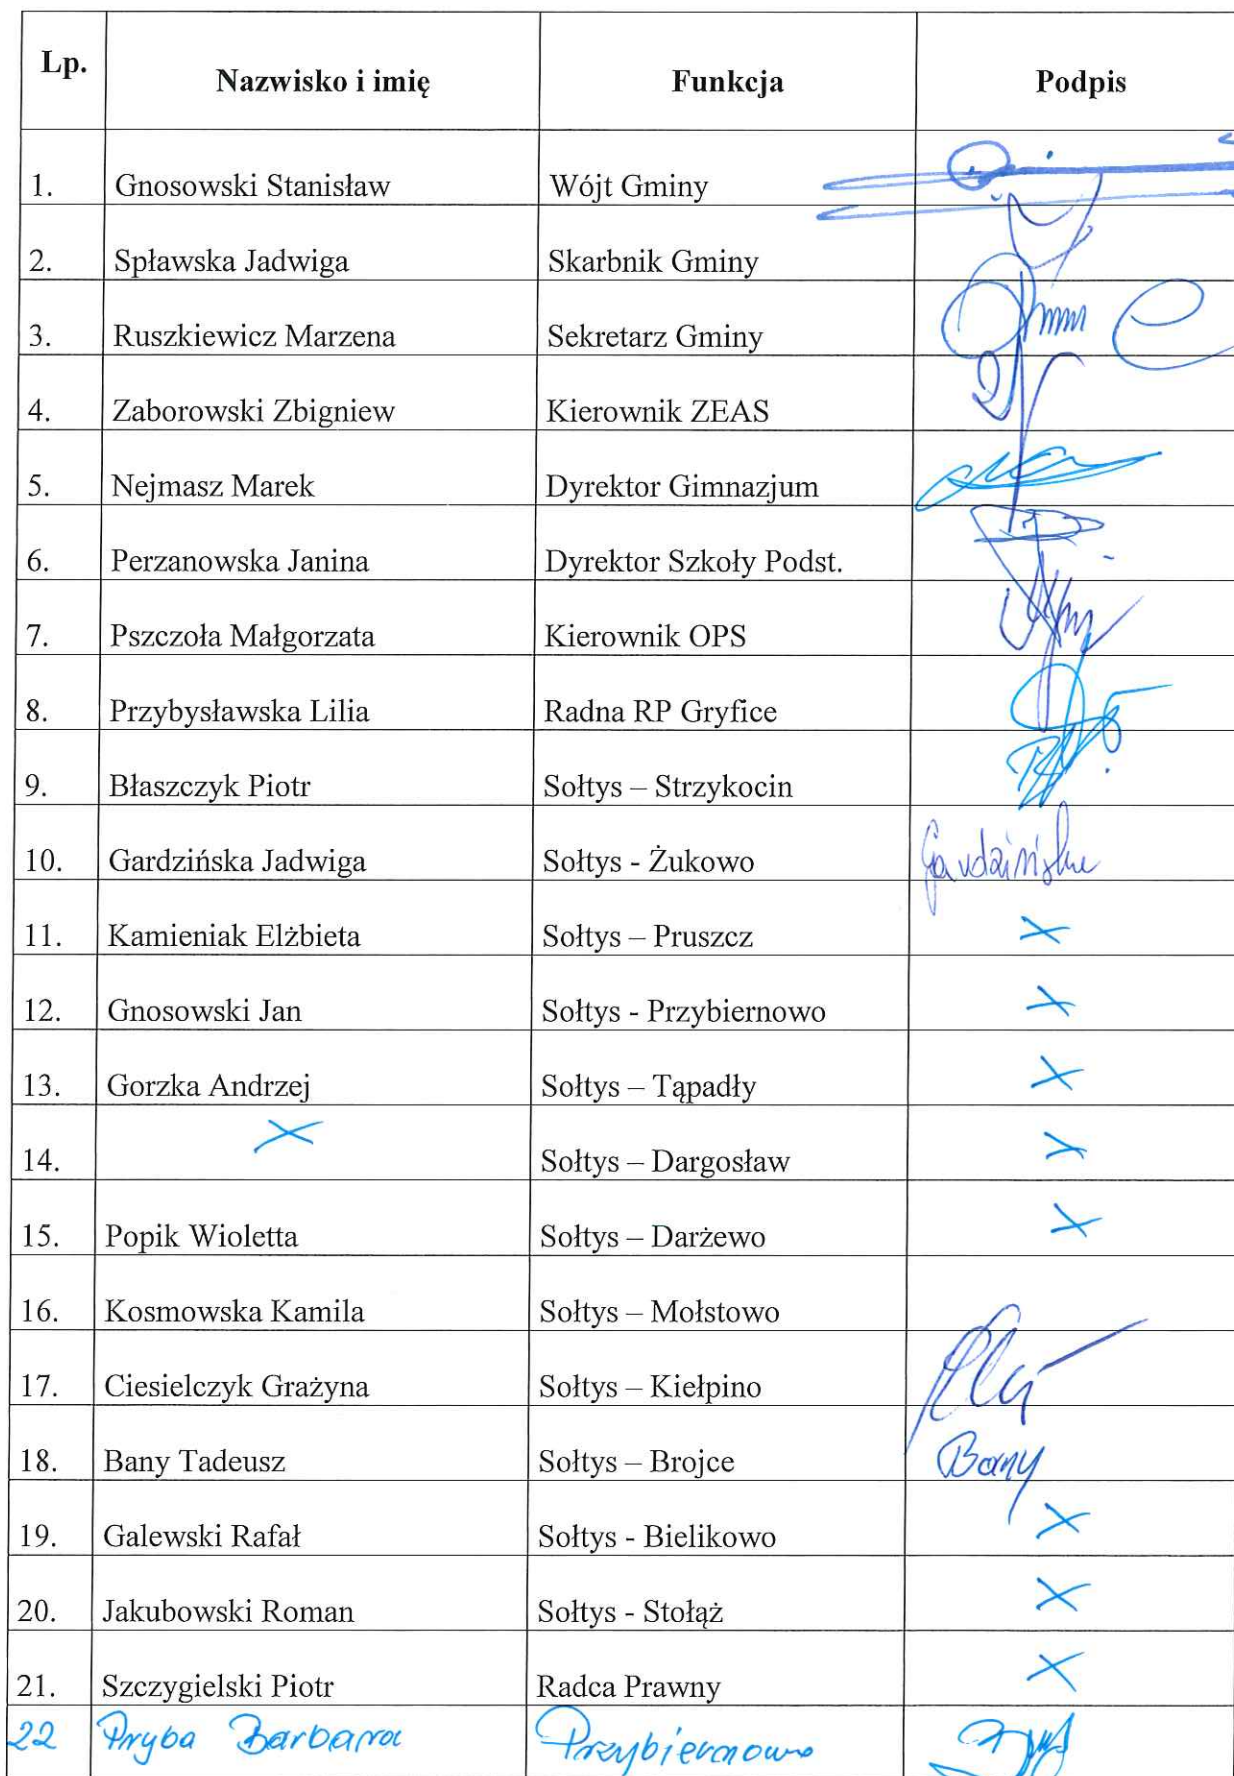 Lp. Nazwisko i imię Funkcja Podpis
1. Gnosowski Stanisław Wójt Gminy
2. Spławska Jadwiga Skarbnik Gminy
3. Ruszkiewicz Marzena Sekretarz Gminy
4. Zaborowski Zbigniew Kierownik ZEAS
5. Nejmasz Marek Dyrektor Gimnazjum
6. Perzanowska Janina Dyrektor Szkoły Podst.
7. Pszczoła Małgorzata Kierownik OPS
8. Przybysławska Lilia Radna RP Gryfice
9. Błaszczyk Piotr Sołtys – Strzykocin
10. Gardzińska Jadwiga Sołtys - Żukowo Gardzińska
11. Kamieniak Elżbieta Sołtys – Pruszcz X
12. Gnosowski Jan Sołtys - Przybiernowo X
13. Gorzka Andrzej Sołtys – Tąpadły X
14. X Sołtys – Dargosław X
15. Popik Wioletta Sołtys – Darżewo X
16. Kosmowska Kamila Sołtys – Mołstowo
17. Ciesielczyk Grażyna Sołtys – Kiełpino
18. Bany Tadeusz Sołtys – Brojce Bany
19. Galewski Rafał Sołtys - Bielikowo X
20. Jakubowski Roman Sołtys - Stołąż X
21. Szczygielski Piotr Radca Prawny X
22 Pryba Barbara Przybiernowo